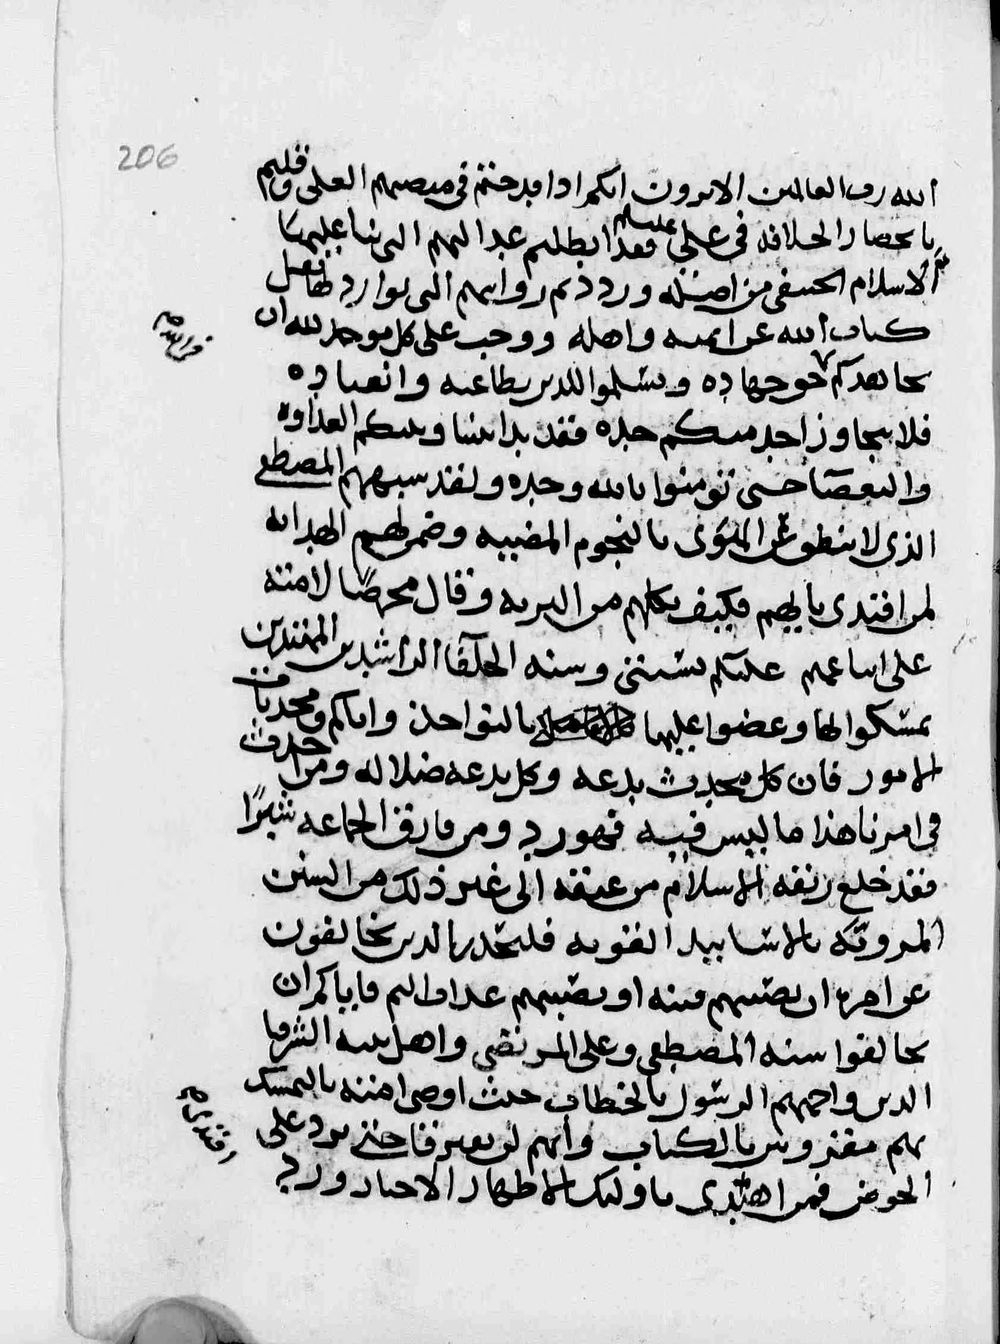 206
الله رب العالمين الا ترون انكم اذا قدحتم في منصبهم العلي وقلتم
بانحصار الخلافة في علي عليه السلم فقد ابطلتم عدالتهم التي بنا عليها
الاسلام الحنيفي من اصله ورددتم رواتهم التي توارد بها نقل
كتاب الله عن ايمته واهله ووجب على كل موحد لله ان
يجاهدكم حق جهاده
فلا يجاوز احد منكم حده فقد بدا بيننا وبينكم العداوة
والبغضا حتى تومنوا بالله وحده ولقد شبههم المصطفى
الذي لا ينطق عن الهوى بالنجوم المضيية وضمن لهم الهداية
لمن اقتدى بايهم فكيف بكلهم من البرية وقال محرضا لامته
على اتباعهم عليكم بسنتي وسنة الخلفا الراشدين المهتدين
تمسكوا بها وعضوا عليها بالنواجذ واياكم ومحدثات
الامور فان كل محدث بدعه وكل بدعه ضلاله ومن احدث
في امرنا هذا ما ليس فيه فهو رد ومن فارق الجماعه شبرًا
فقد خلع ربقة الاسلام من عنقه الى غير ذلك من السنن
المرويه بالاسانيد القويه فليحذر الذين يخالفون
عن امره ان تصيبهم فتنه او يصيبهم عذاب اليم فاياكم ان
تخالفوا سنة المصطفى وعلي المرتضى واهل بيته الشرفا
الذين واجههم الرسول بالخطاب حيث اوصى امته بالتمسك
بهم مقترونين بالكتاب وانهم لن يفترقا حتى يردا علي
الحوض فمن اهتدى باولئك الاطهار الاخيار ورد